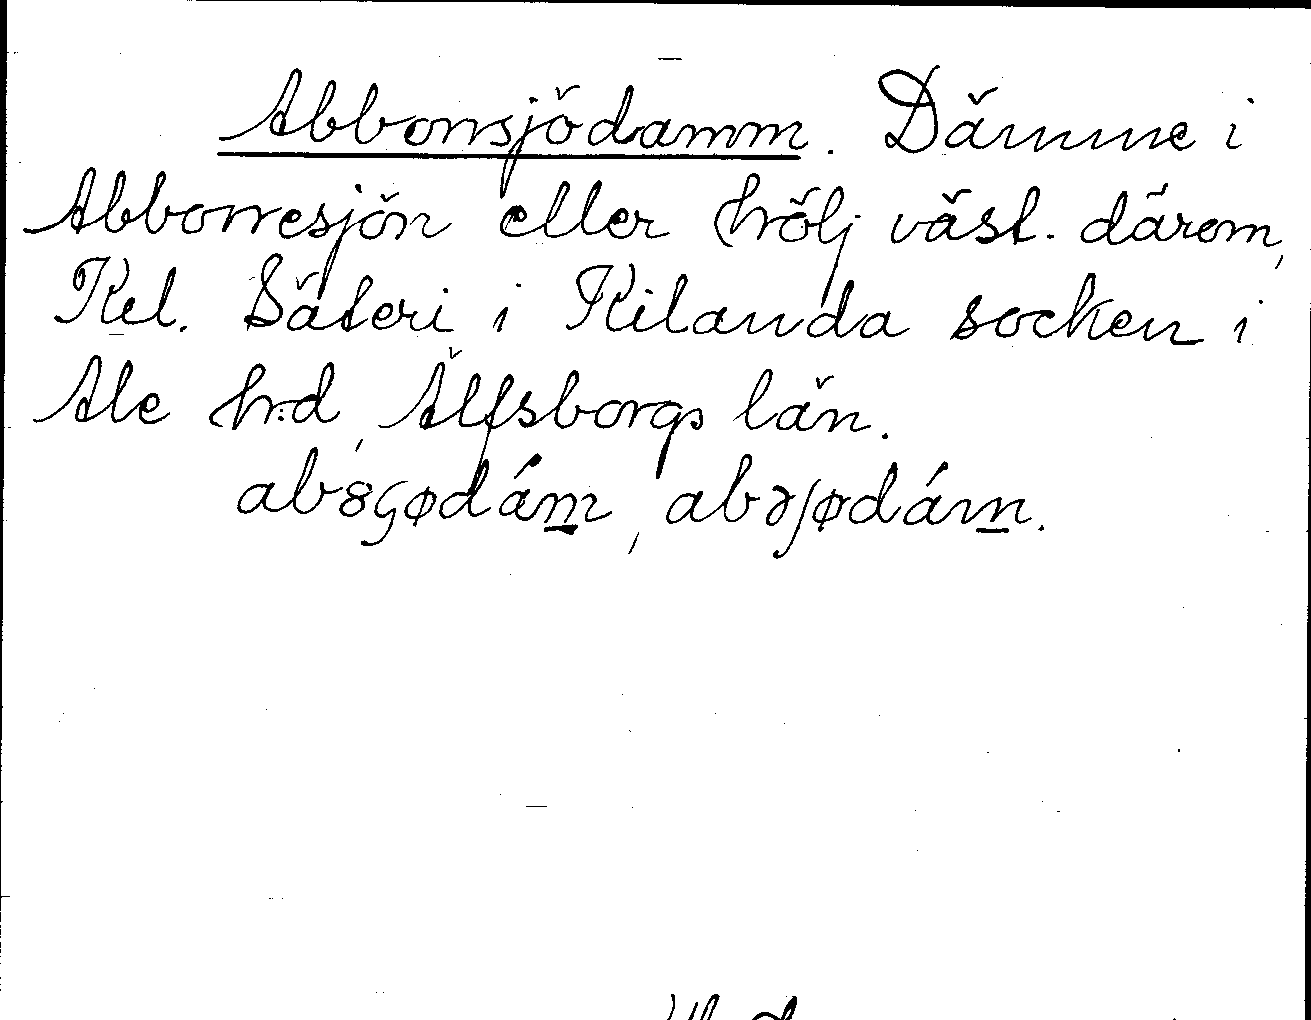 Abborrsjödamm. Dämme i
Abborresjön eller hölj väst. därom,
Kil. Säteri i Kilanda socken i
Ale h:d, Älfsborgs län.